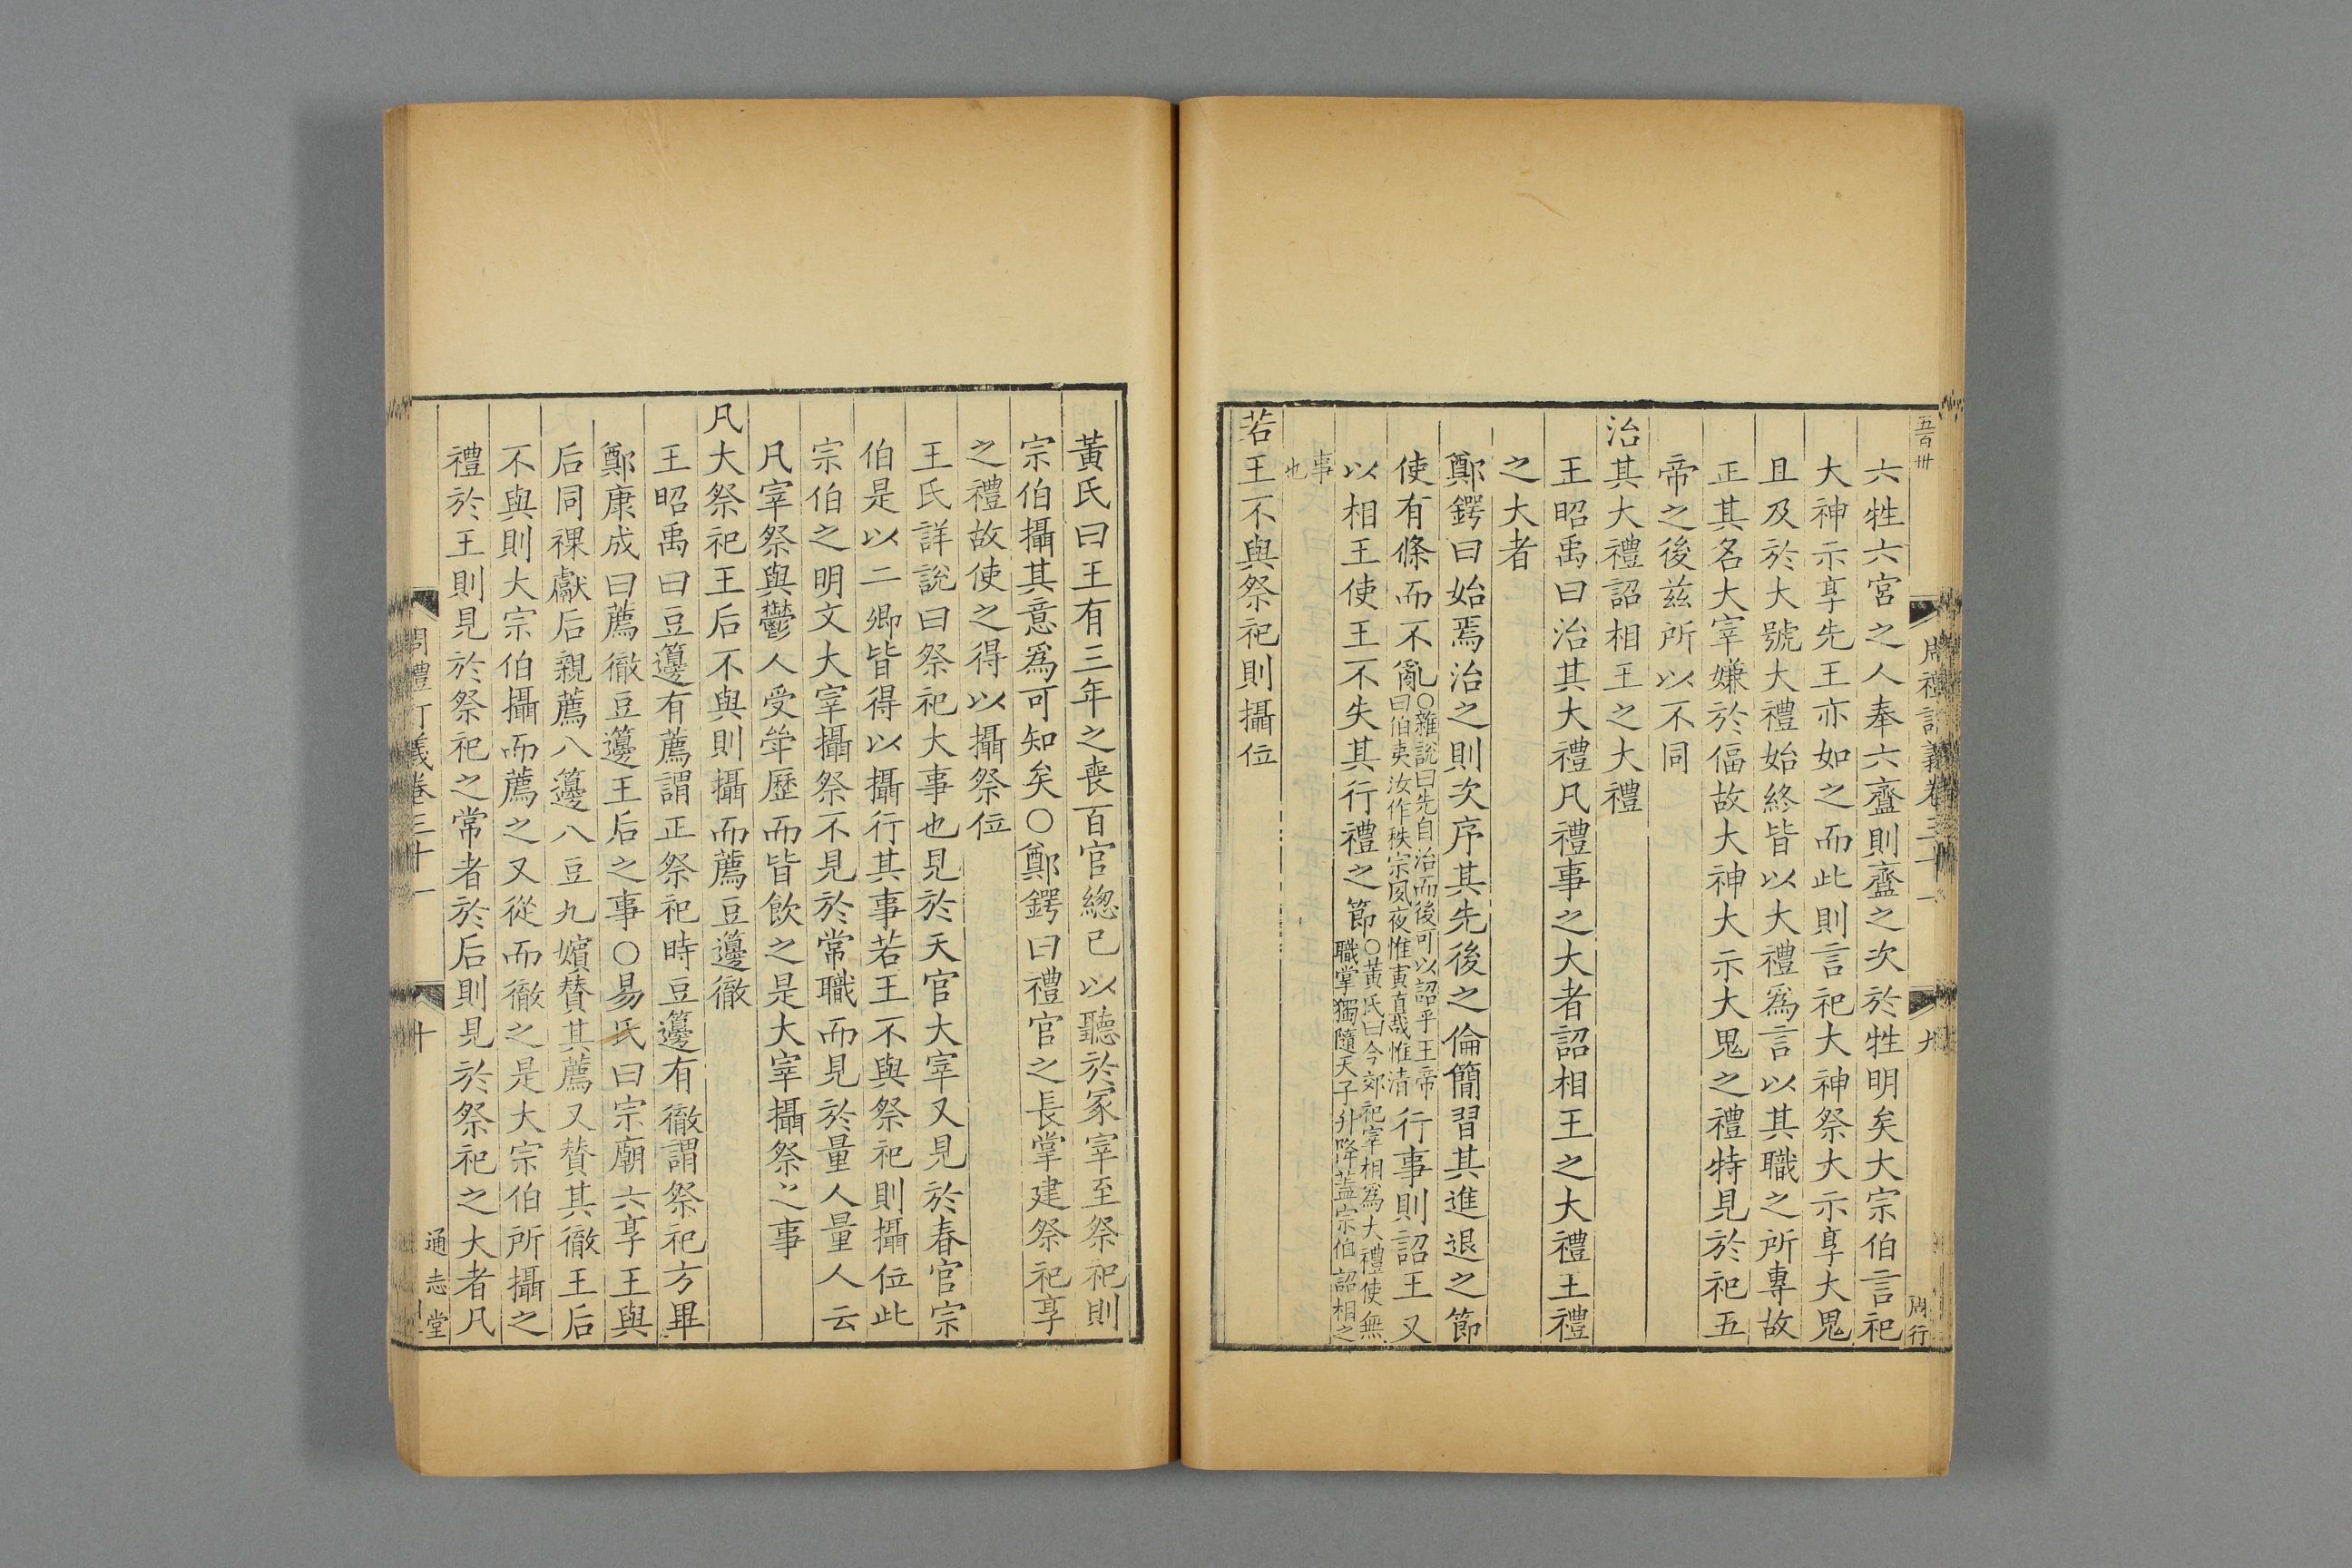 五百卅
周禮訂義卷三十一
九
周行
六牲六宮之人奉六齍則齍之次於牲明矣大宗伯言祀
大神示享先王亦如之而此則言祀大神祭大示享大鬼
且及於大號大禮始終皆以大禮爲言以其職之所專故
正其名大宰嫌於偪故大神大示大鬼之禮特見於祀五
帝之後兹所以不同
治其大禮詔相王之大禮
王昭禹曰治其大禮凡禮事之大者詔相王之大禮王禮
之大者
鄭鍔曰始焉治之則次序其先後之倫簡習其進退之節
使有條而不亂○雜說曰先自治而後可以詔乎王帝曰伯夷汝作秩宗夙夜惟寅直哉惟清行事則詔王又
以相王使王不失其行禮之節○黃氏曰今郊祀宰相爲大禮使無職掌獨隨天子升降葢宗伯詔相之
事也
若王不與祭祀則攝位
黃氏曰王有三年之喪百官緫已以聽於冢宰至祭祀則
宗伯攝其意爲可知矣○鄭鍔曰禮官之長掌建祭祀享
之禮故使之得以攝祭位
王氏詳說曰祭祀大事也見於天官大宰又見於春官宗
伯是以二卿皆得以攝行其事若王不與祭祀則攝位此
宗伯之明文大宰攝祭不見於常職而見於量人量人云
凡宰祭與鬱人受斝歷而皆飲之是大宰攝祭之事
凡大祭祀王后不與則攝而薦豆籩徹
王昭禹曰豆籩有薦謂正祭祀時豆籩有徹謂祭祀方畢
鄭康成曰薦徹豆籩王后之事○易氏曰宗廟六享王與
后同祼獻后親薦八籩八豆九嬪賛其薦又賛其徹王后
不與則大宗伯攝而薦之又從而徹之是大宗伯所攝之
禮於王則見於祭祀之常者於后則見於祭祀之大者凡
周禮訂義卷三十一
十
通志堂